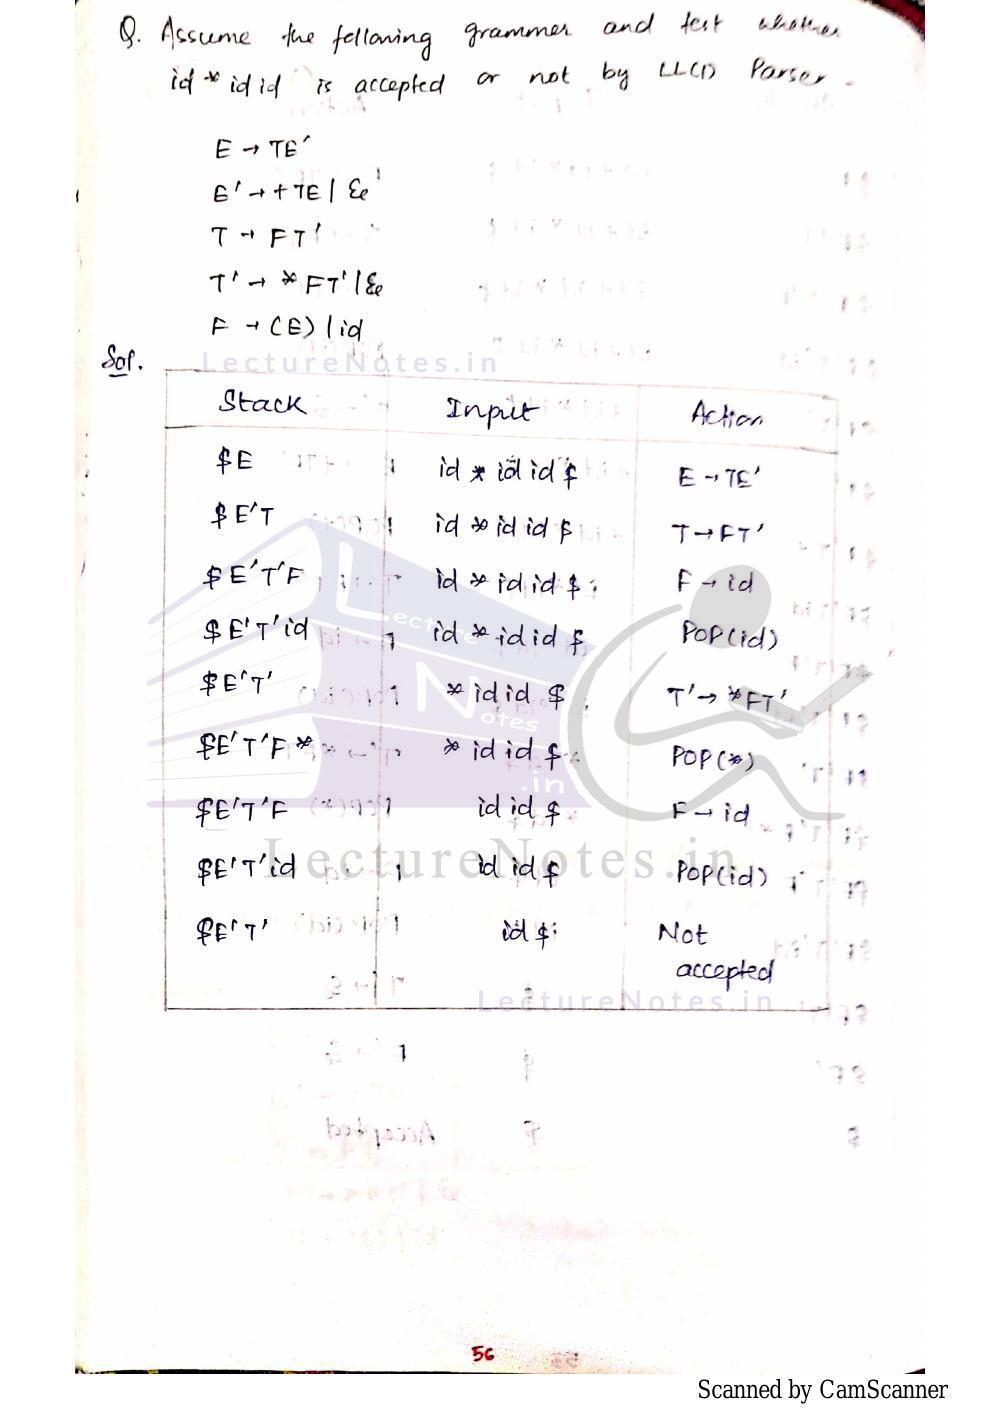 Q. Assume the following grammer and test whether
id * id id is accepted or not by LL(1) Parser.
E → TE'
E' → +TE | ε
T → FT'
T' → *FT' | ε
F → (E) | id
Sol.
LectureNotes.in
Stack Input Action
$E id * id id $ E → TE'
$E'T id * id id $ T → FT'
$E'T'F id * id id $ F → id
$E'T'id id * id id $ POP(id)
$E'T' * id id $ T' → *FT'
$E'T'F* * id id $ POP(*)
$E'T'F id id $ F → id
LectureNotes.in
$E'T'id id id $ POP(id)
$E'T' id $ Not
accepted
LectureNotes.in
56
Scanned by CamScanner